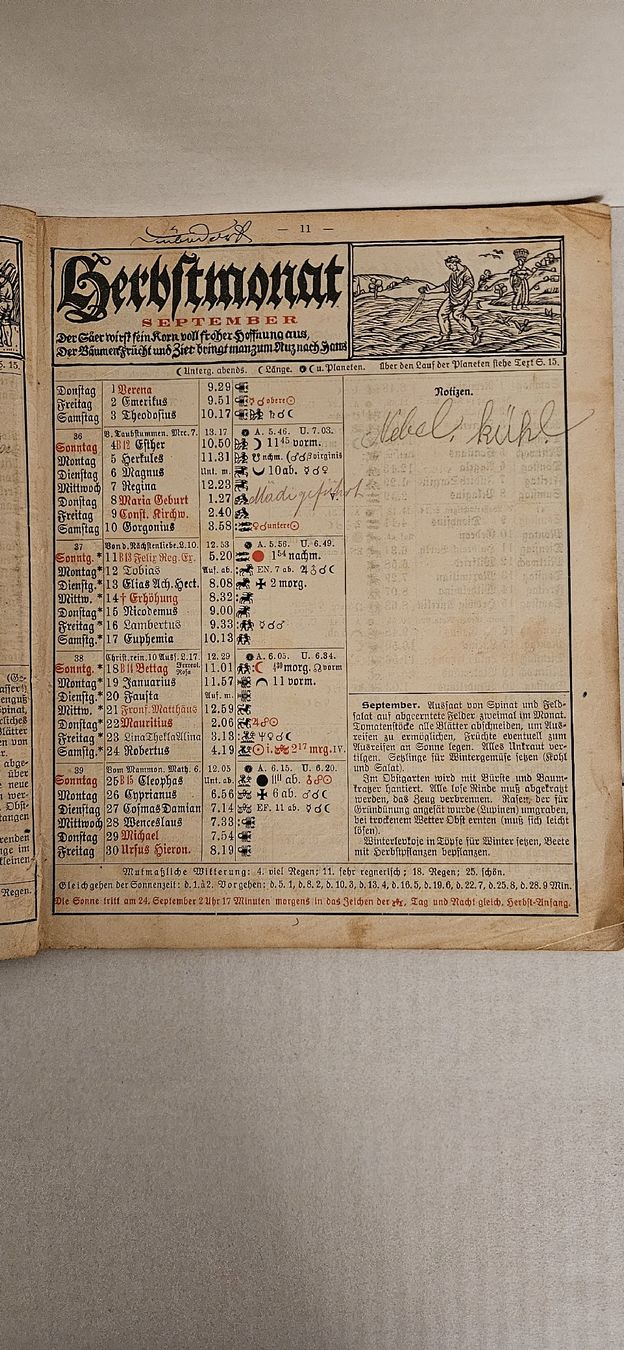 — 11 —
Herbstmonat
SEPTEMBER
Der Säer wirft sein Korn voll froher Hoffnung aus,
Der Bäumen Frücht und Zier bringt man zum Nuz nach Haus
☾ Unterg. abends. ☾ Länge. ☾ u. Planeten. über den Lauf der Planeten siehe Text S. 15.
Donstag 1 Verena 9.29
Freitag 2 Emerikus 9.51 obere
Samstag 3 Theodosius 10.17
Notizen.
Nebel. kühl
36 V. Taubstummen. Mrc. 7. 13.17 A. 5.46. U. 7.03.
Sonntag 4 B 12 Esther 10.50 11⁴⁵ vorm.
Montag 5 Herkules 11.31 nchm. virginis
Dienstag 6 Magnus Unt. m. 10 ab.
Mittwoch 7 Regina 12.23
Donstag 8 Maria Geburt 1.27
Freitag 9 Const. Kirchw. 2.40
Samstag 10 Gorgonius 3.58 untere
37 Von d. Nächstenliebe. L. 10. 12.53 A. 5.56. U. 6.49.
Sonntg.* 11 B 13 Felix Reg. Ex. 5.20 1⁵⁴ nachm.
Montag* 12 Tobias Auf. ab. EN. 7 ab.
Dienstg.* 13 Elias Ach. Hect. 8.08 2 morg.
Mittw. * 14 † Erhöhung 8.32
Donstag* 15 Nicodemus 9.00
Freitag* 16 Lambertus 9.33
Samstg.* 17 Euphemia 10.13
38 Christ. rein. 10 Auss. L. 17. 12.29 A. 6.05. U. 6.34.
Sonntg. * 18 B 14 Bettag 11.01 morg. vorm
Montag* 19 Januarius 11.57 11 vorm.
Dienstg.* 20 Fausta Auf. m.
Mittw. * 21 Fronf. Matthäus 12.59
Donstag* 22 Mauritius 2.06
Freitag * 23 Lina Thekla Alina 3.13
Samstg.* 24 Robertus 4.19 i. 2¹⁷ mrg.
39 Vom Mammon. Math. 6. 12.05 A. 6.15. U. 6.20.
Sonntag 25 B 15 Cleophas Unt. ab. ab.
Montag 26 Cyprianus 6.56 6 ab.
Dienstag 27 Cosmas Damian 7.14 EF. 11 ab.
Mittwoch 28 Wenceslaus 7.33
Donstag 29 Michael 7.54
Freitag 30 Ursus Hieron. 8.19
September. Aussaat von Spinat und Feld-
salat auf abgeerntete Felder zweimal im Monat.
Tomatenstöcke alle Blätter abschneiden, um Aus-
reifen zu ermöglichen, Früchte eventuell zum
Ausreifen an Sonne legen. Alles Unkraut ver-
tilgen. Setzlinge für Wintergemüse setzen (Kohl
und Salat).
Im Obstgarten wird mit Bürste und Baum-
kratzer hantiert. Alle lose Rinde muß abgekratzt
werden, das Zeug verbrennen. Rasen, der für
Gründüngung angesät wurde (Lupinen) umgraben,
bei trockenem Wetter Obst ernten (muß sich leicht
lösen).
Winterlevkoje in Töpfe für Winter setzen, Beete
mit Herbstpflanzen bepflanzen.
Mutmaßliche Witterung: 4. viel Regen; 11. sehr regnerisch; 18. Regen; 25. schön.
Gleichgehen der Sonnenzeit: d. 1. à 2. Vorgehen: d. 5. 1, d. 8. 2, d. 10. 3, d. 13. 4, d. 16. 5, d. 19. 6, d. 22. 7, d. 25. 8, d. 28. 9 Min.
Die Sonne tritt am 24. September 2 Uhr 17 Minuten morgens in das Zeichen der Tag und Nacht gleich. Herbst-Anfang.